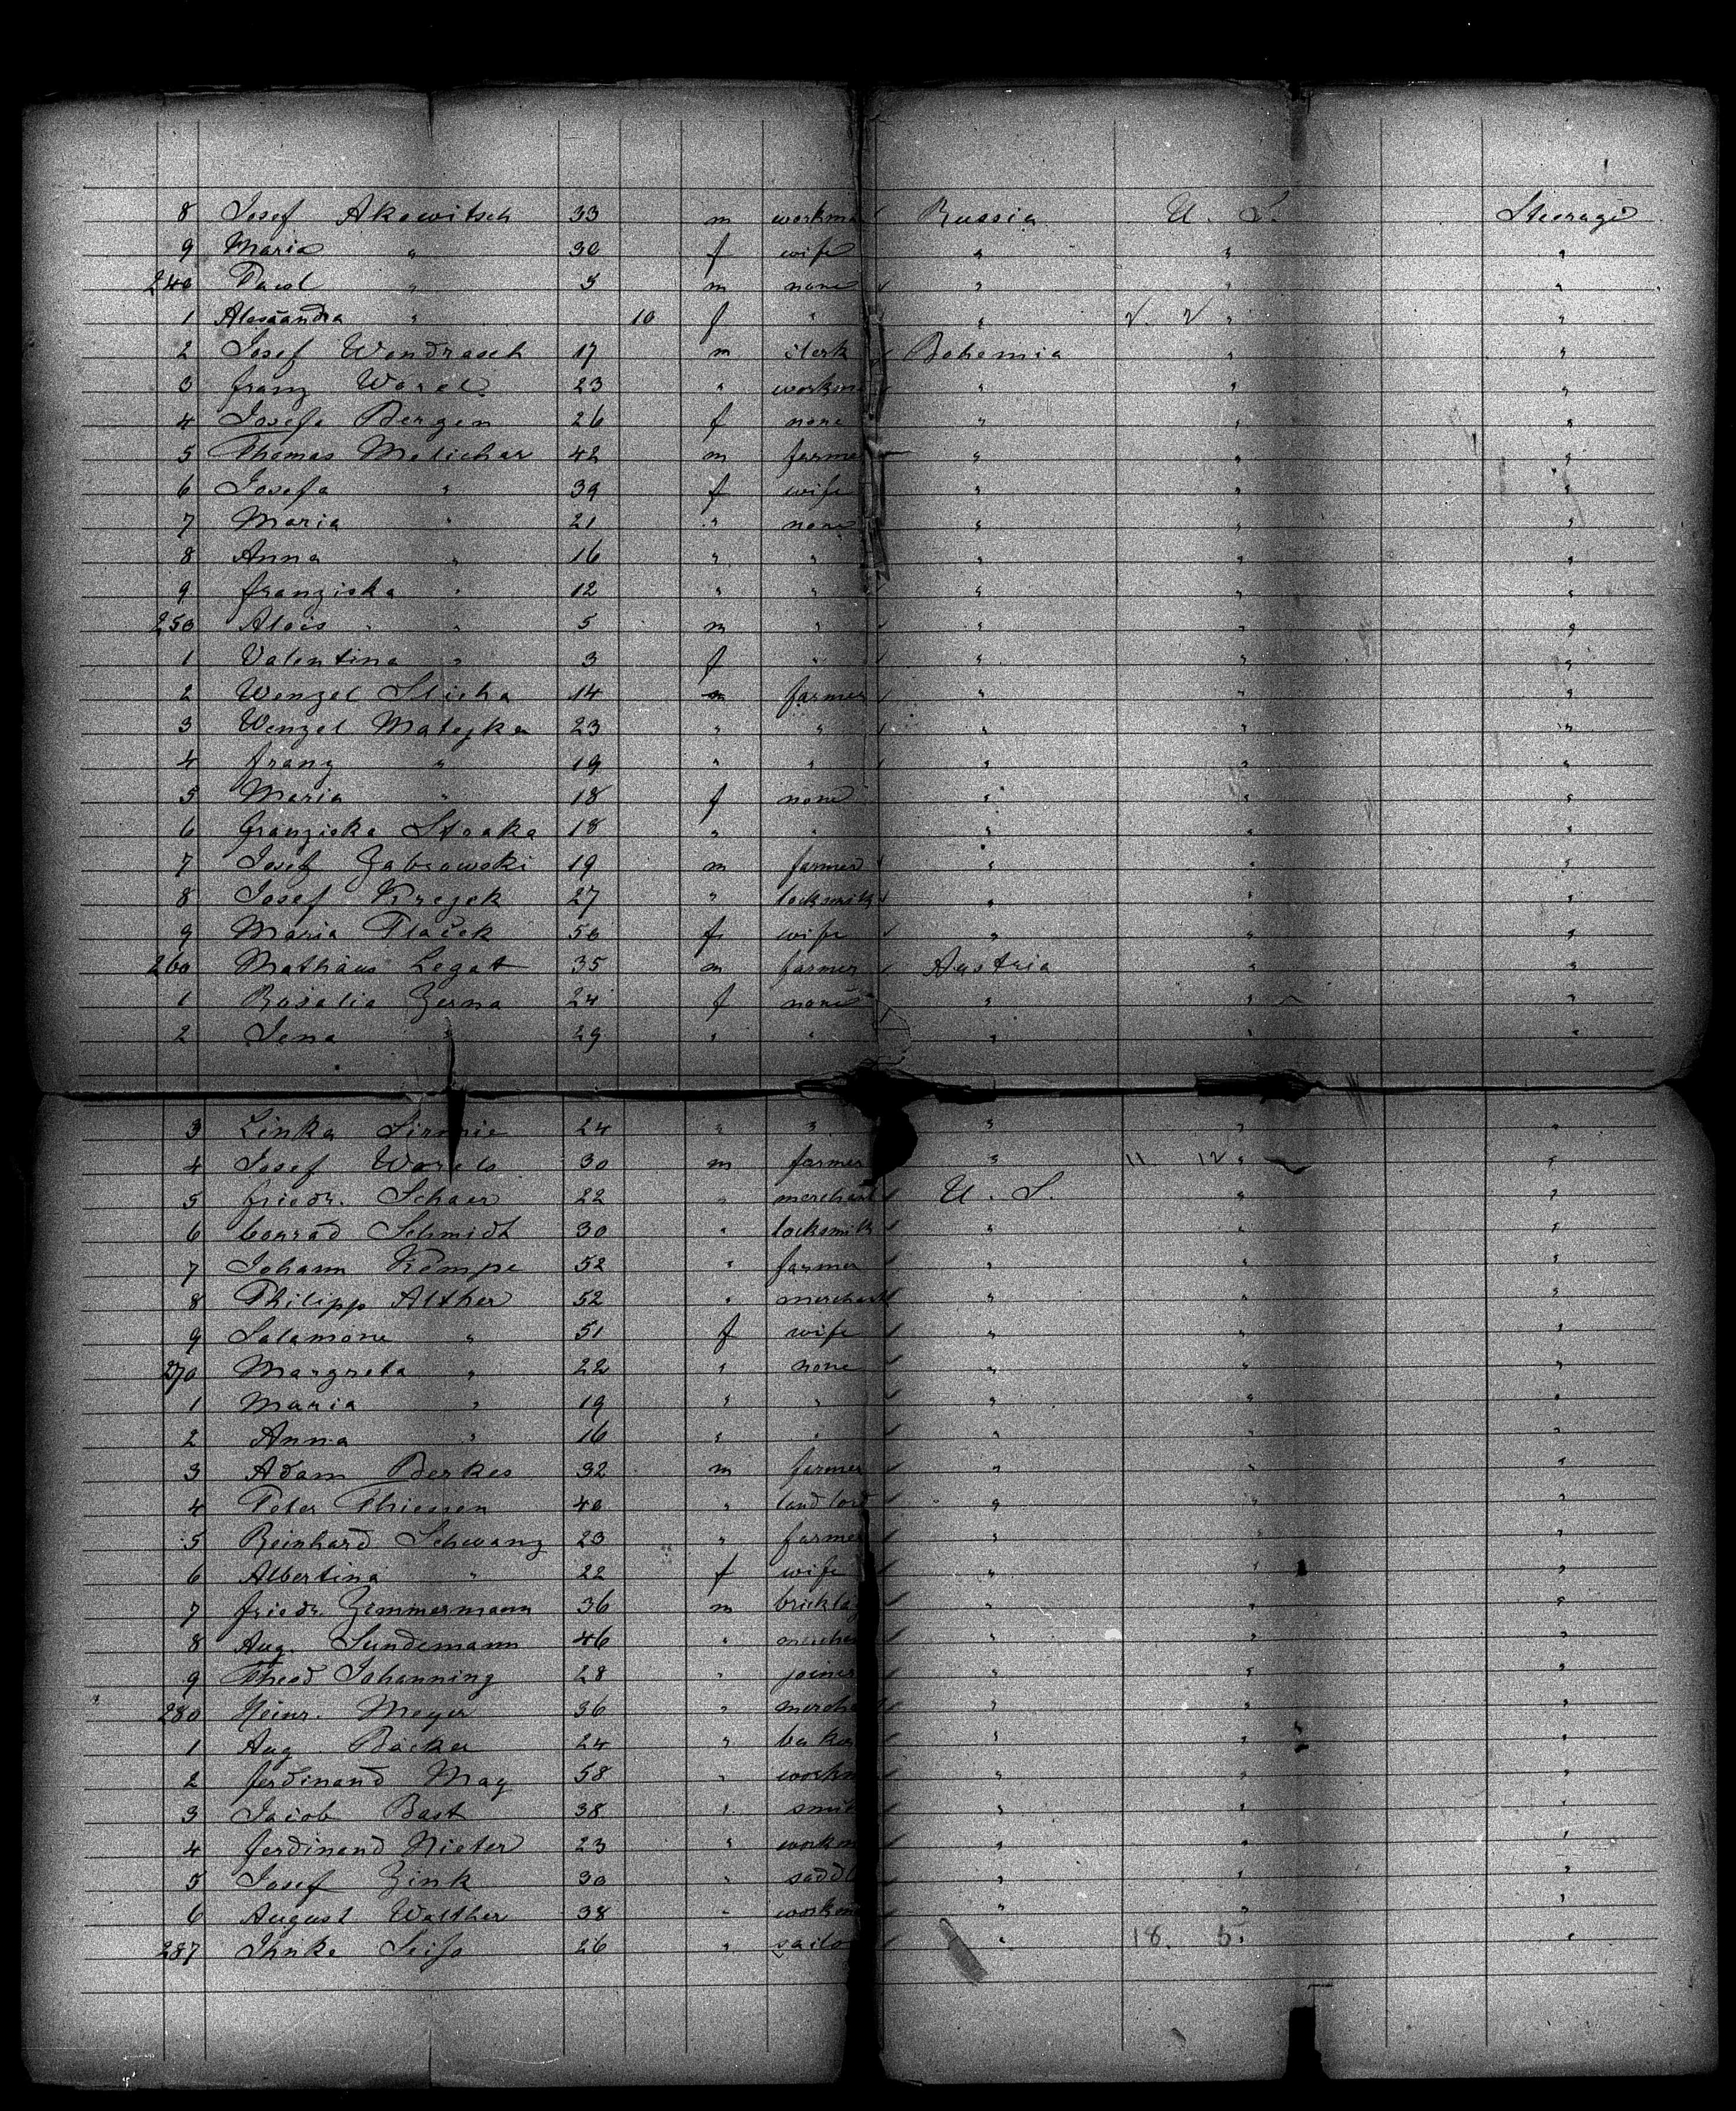 8 Josef Akowitsch 33 m workma Russia U. S. Steerage
9 Maria " 30 f wife " " "
240 Pawl " 5 m none " " "
1 Alexandra " 10 f " " " "
2 Josef Wondrasch 17 m clerk Bohemia " "
3 Franz Warel 23 " workm " " "
4 Josefa Bergen 26 f none " " "
5 Thomas Melichar 42 m farme " " "
6 Josefa " 39 f wife " " "
7 Maria " 21 " none " " "
8 Anna " 16 " " " " "
9 Franziska " 12 " " " " "
250 Alois " 5 m " " " "
1 Valentina " 3 f " " " "
2 Wenzel Slicha 14 m farmer " " "
3 Wenzel Matejka 23 " " " " "
4 Franz " 19 " " " " "
5 Maria " 18 f none " " "
6 Franziska Stoaka 18 " " " " "
7 Josef Zabrowski 19 m farmer " " "
8 Josef Krejek 27 " locksmith " " "
9 Maria Placek 50 f wife " " "
260 Mathäus Legat 35 m farmer Austria " "
1 Rosalia Zerna 24 f none " " "
2 Lena " 29 " " " " "
3 Linka 24 " " " " "
4 Josef 30 m farmer " 11 12 " "
5 Friedr. Schaer 22 " merchant U. S. " "
6 Conrad Schmidt 30 " locksmith " " "
7 Johann Kempe 52 " farmer " " "
8 Philipp Alther 52 " merchant " " "
9 Salamone " 51 f wife " " "
270 Margreta " 22 " none " " "
1 Maria " 19 " " " " "
2 Anna " 16 " " " " "
3 Adam Berkes 32 m farmer " " "
4 Peter Thiessen 40 " landlord " " "
5 Reinhard Schwanz 23 " farmer " " "
6 Albertina " 22 f wife " " "
7 Friedr. Zimmermann 36 m bricklay " " "
8 Aug. Sundemann 46 " merchan " " "
9 Theod Johanning 28 " joiner " " "
280 Heinr. Meyer 36 " mercha " " "
1 Aug. Backer 24 " baker " " "
2 Ferdinand May 58 " workm " " "
3 Jacob Bast 38 " smit " " "
4 Ferdinand Nieter 23 " workm " " "
5 Josef Zink 30 " saddl " " "
6 August Walther 38 " workm " " "
287 Ihnke Seifo 26 " sailo " 18. 5. " "